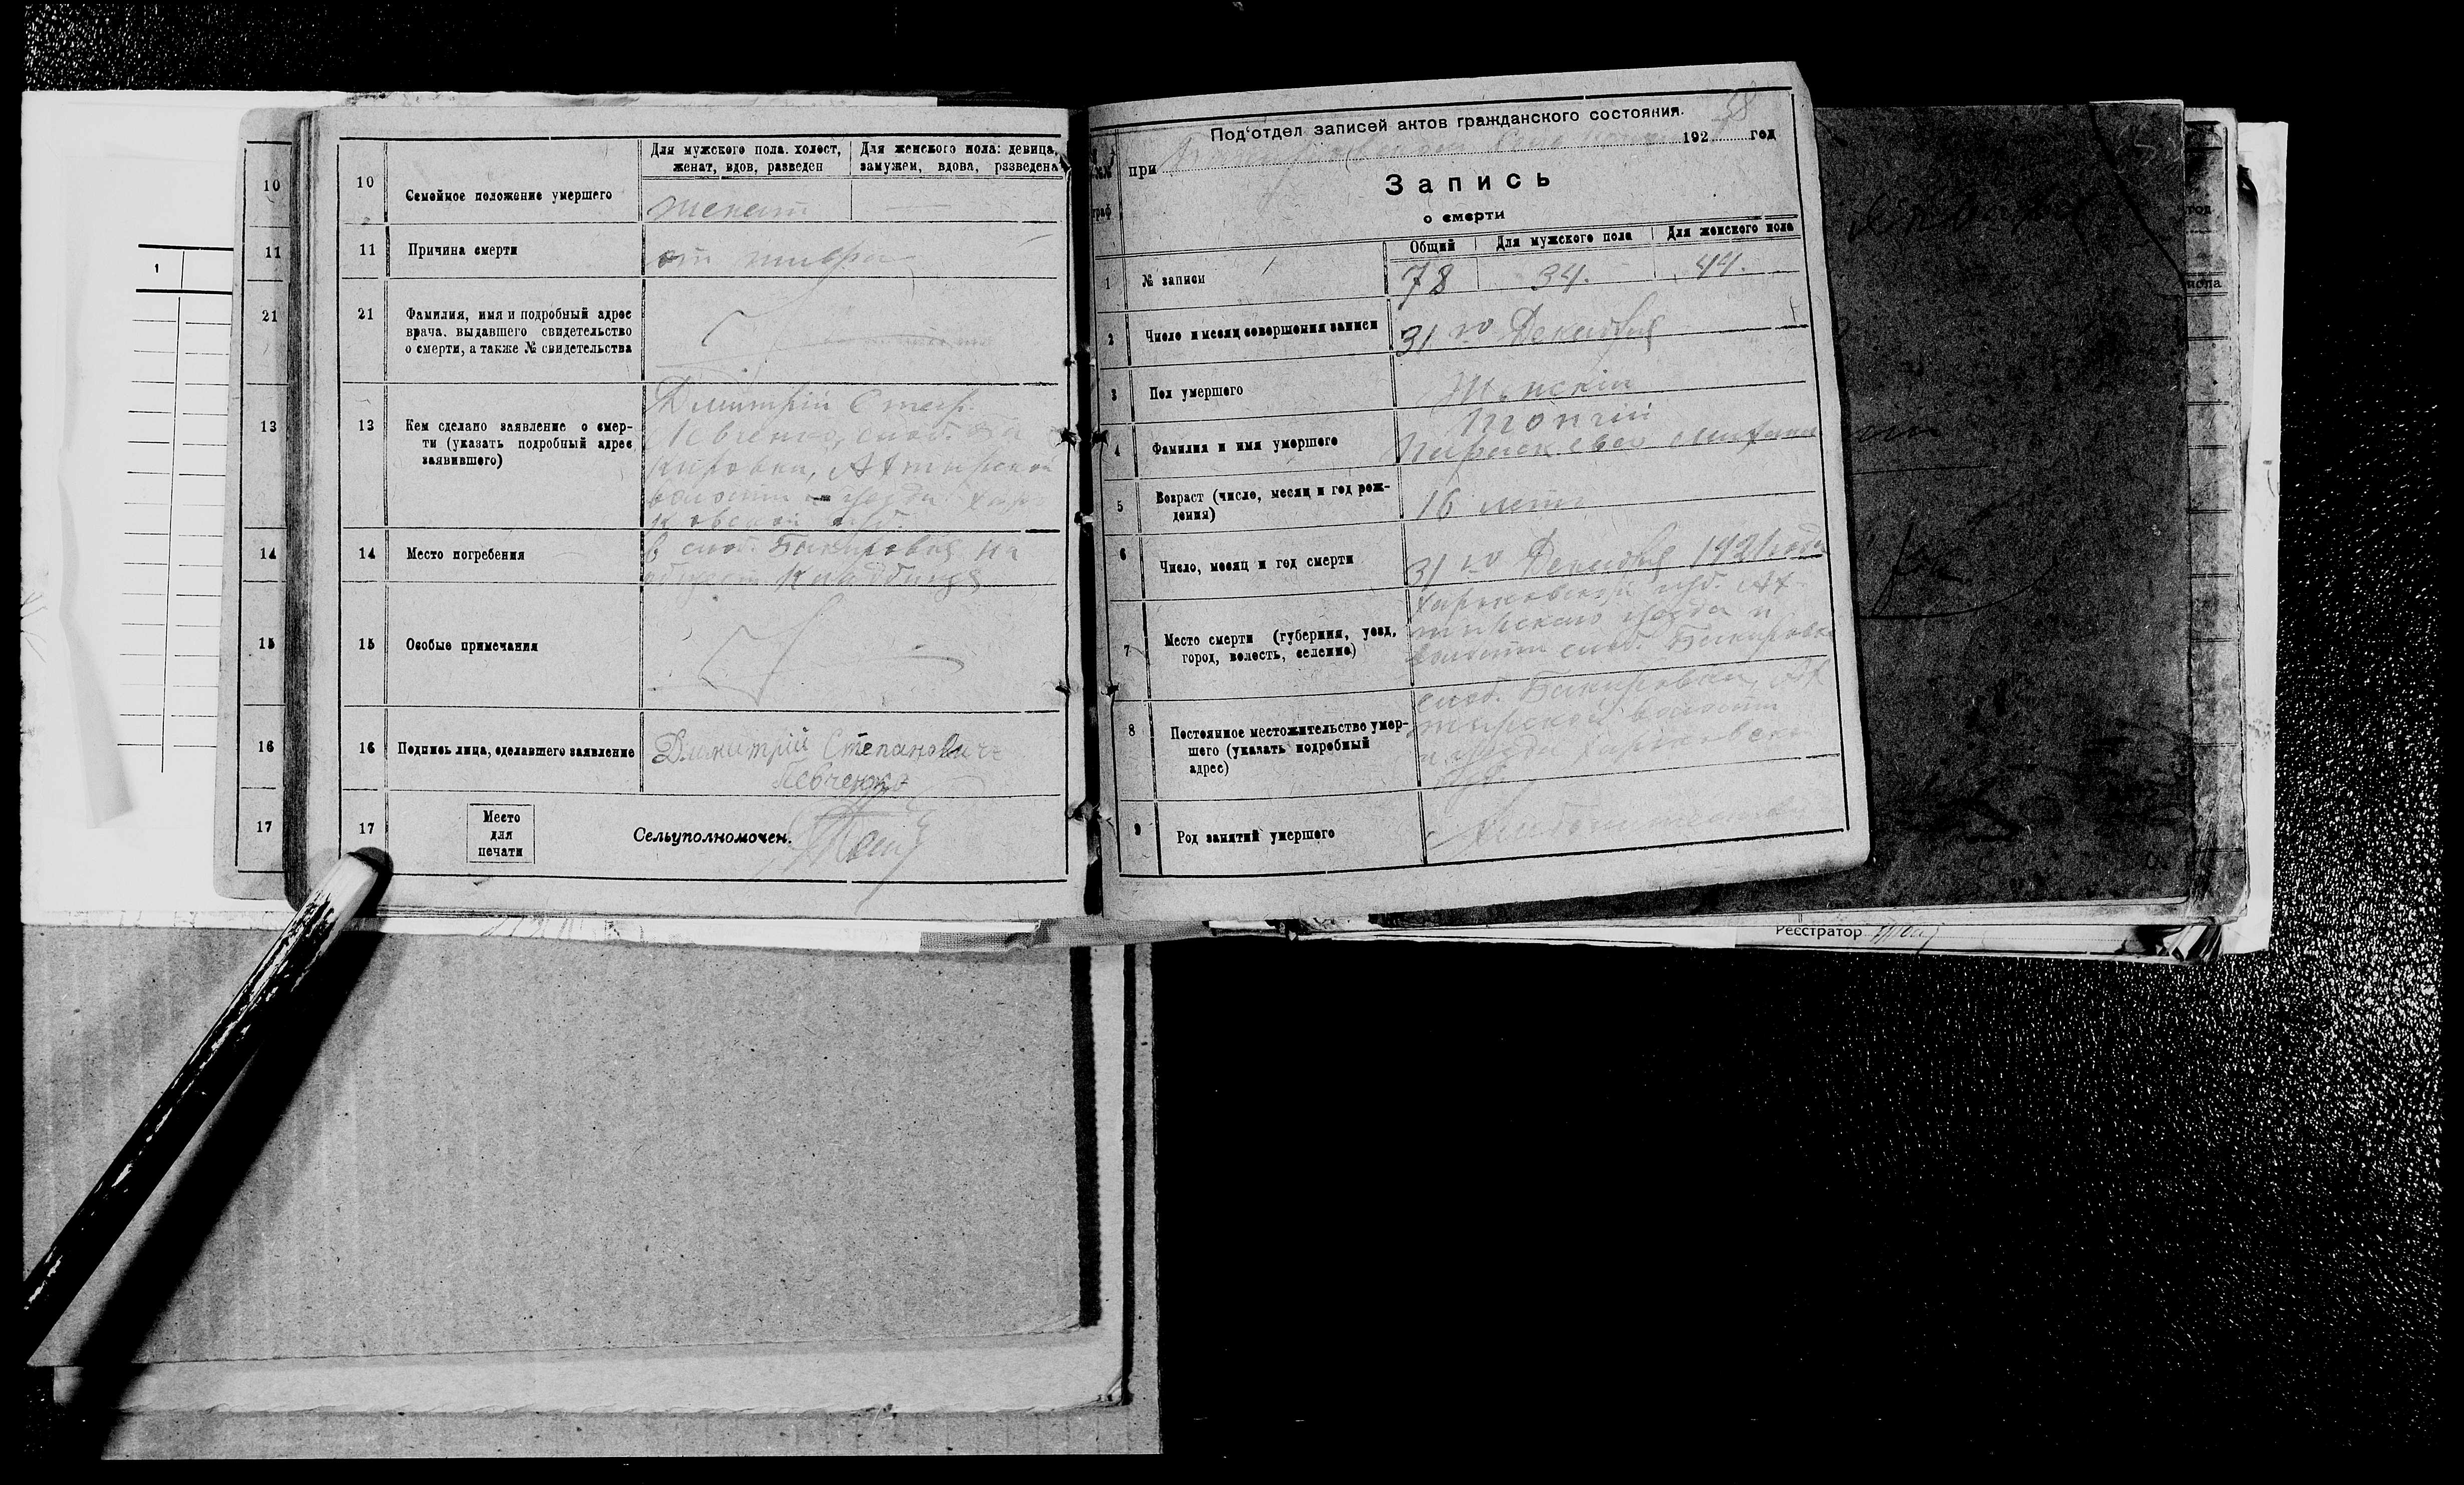 10
11
21
13
14
15
16
17
10
Семейное положение умершего
Для мужского пола. холост,
женат, вдов, разведен
Для женского пола: девица,
замужем, вдова, разведена
женат
11
Причина смерти
от тифа
21
Фамилия, имя и подробный адрес
врача. выдавшего свидетельство
о смерти, а также № свидетельства
13
Кем сделано заявление о смер-
ти (указать подробный адрес
заявившего)
Дмитрій Степ.
слоб. Ба
кировки, Ахтырской
волости уезда Харь
ковской губ.
14
Место погребения
в слоб. Бакировке на
кладбище
15
Особые примечания
16
Подпись лица, сделавшего заявление
Димитрій Степановичъ
17
Место
для
печати
Сельуполномочен.
Под‘отдел записей актов гражданского состояния.
58
при
192 год
Запись
о смерти
граф
Общий
Для мужского пола
Для женского пола
1
№ записи
78
34.
44.
2
Число и месяц совершения записи
31 го Декабря
3
Пол умершего
Женскій
4
Фамилия и имя умершего
Параскева
5
Возраст (число, месяц и год рож-
дения)
16 летъ
6
Число, месяц и год смерти
31 го Декабря 1921 года
7
Место смерти (губерния, уезд,
город, волость, селение)
Харьковской губ. Ах-
тырского уезда и
волости слоб. Бакировка
8
Постоянное местожительство умер-
шего (указать подробный
адрес)
слоб. Бакировки, Ах
тырской волости
и уезда Харьковской
губ.
9
Род занятий умершего
Реєстратор